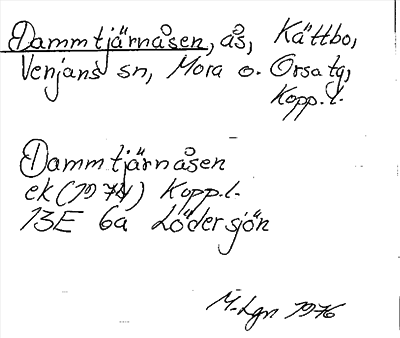 Dammtjärnåsen, ås, Kättbo,
Venjans sn, Mora o. Orsa tg,
Kopp. l.
Dammtjärnåsen
ek (1974) Kopp. l.
13E 6a Lödersjön
M-Lgn 1976